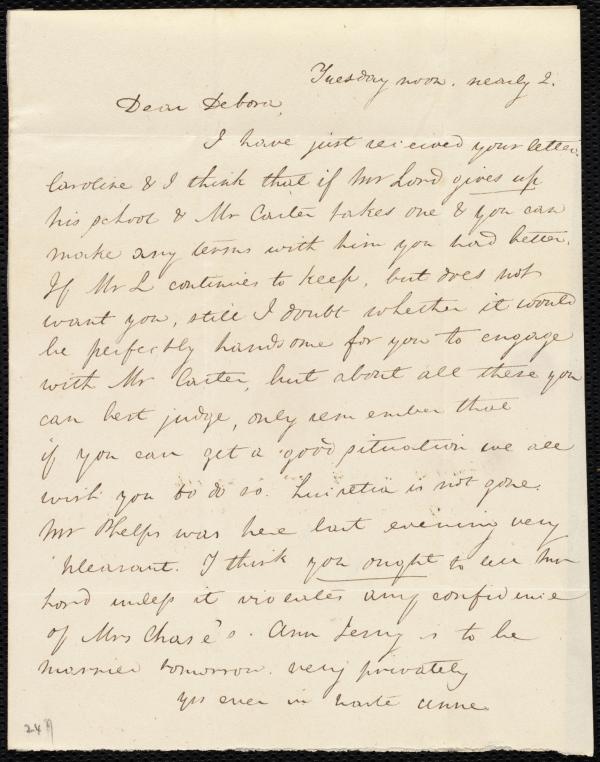 Tuesday noon. nearly 2.
Dear Debora,
I have just received your letter.
Caroline & I think that if Mr Lord gives up
his school & Mr Carter takes one & you can
make any terms with him you had better.
If Mr L continues to keep, but does not
want you, still I doubt whether it would
be perfectly handsome for you to engage
with Mr Carter, but about all these you
can best judge, only remember that
if you can get a good situation we all
wish you to do so. Lucretia is not gone.
Mr Phelps was here last evening very
pleasant. I think you ought to see Mr
Lord unless it violates any confidence
of Mrs Chase's. Ann Terry is to be
married tomorrow. very privately
yrs ever in haste Anne
24